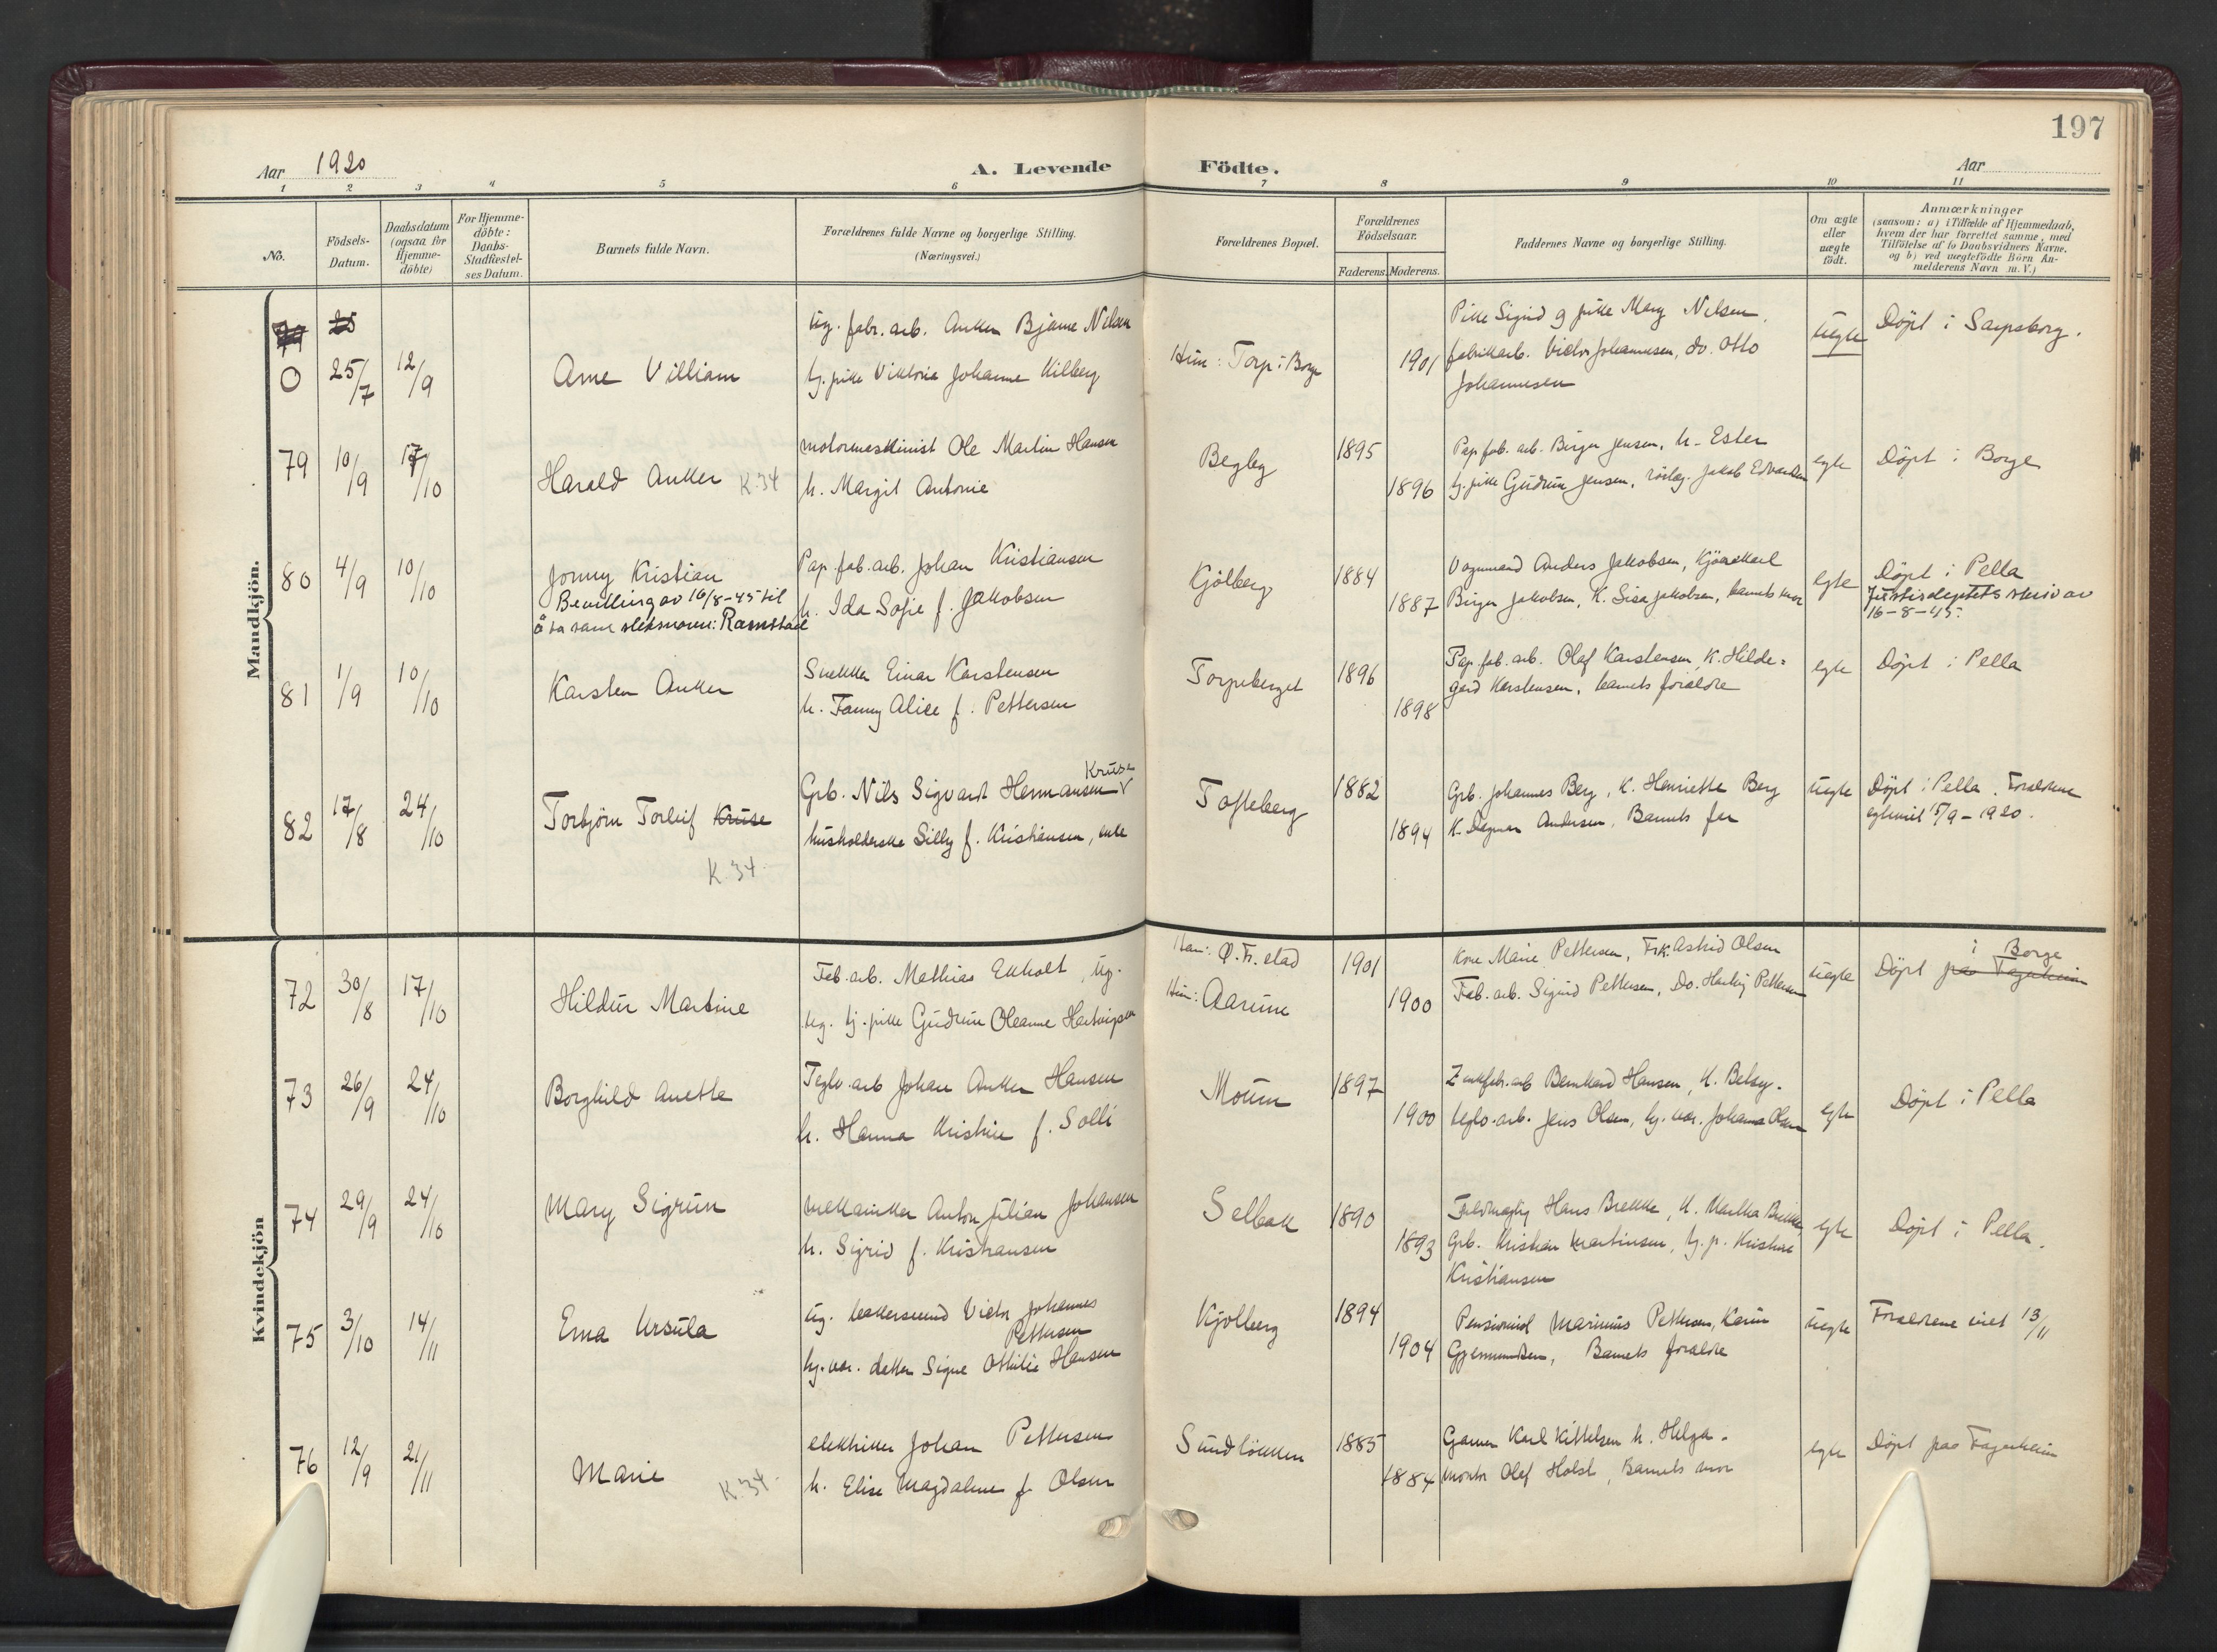 197
Aar 1920
A. Levende Födte.
Aar
1 2 3 4 5 6 7 8 9 10 11
No.
Födsels-Datum.
Daabsdatum (ogsaa for Hjemme-döbte)
For Hjemme-döbte: Daabs-Stadfæstel-ses Datum.
Barnets fulde Navn.
Forældrenes fulde Navne og borgerlige Stilling. (Næringsvei.)
Forældrenes Bopæl.
Forældrenes Födselsaar.
Faderens. Moderens.
Faddernes Navne og borgerlige Stilling.
Om ægte eller uægte födt.
Anmærkninger
(saasom: a) i Tilfælde af Hjemmedaab,
hvem der har forrettet samme, med
Tilföielse af to Daabsvidners Navne,
og b) ved uægtefödte Börn An-
melderens Navn m. V.)
Mandkjön.
25
ug. fabr. arb. Anker Bjarne Nilsen
Pike Sigrid og pike Mary Nilsen,
0 25/7 12/9 Arne Villiam
tj. pike Viktoria Johanne Kilberg
Hun: Torp i Borge
1901
fabrikarb. Victor Johannesen, do. Otto
Johannesen
uegte
Døpt i Sarpsborg.
79 10/9 17/10 Harald Anker K. 34
motormaskinist Ole Martin Hansen
h. Margit Antonie
Begby
1895
1896
Pap. fab. arb. Birger Jensen, h. Ester
tj. pike Gudrun Jensen, rörlæg. Jakob Edvardsen
egte
Døpt i Borge
80 4/9 10/10 Jonny Kristian
Bevilling av 16/8-45 til
å ta navn slektsnavn: Ramstad
Pap. fab. arb. Johan Kristiansen
h. Ida Sofie f. Jakobsen
Kjölberg
1884
1887
Vognmand Anders Jakobsen, Kjörekarl
Birger Jakobsen, K. Sina Jakobsen, barnets mor
egte
Døpt i Pella
Justisdeptets skriv av
16-8-45.
81 1/9 10/10 Karsten Anker
Snekker Einar Karstensen
h. Fanny Alice f. Pettersen
Torpeberget
1896
1898
Pap. fab. arb. Olaf Karstensen, K. Hilde-
gard Karstensen, barnets foreldre
egte
Døpt i Pella
82 17/8 24/10 Torbjörn Torleif Kruse
K. 34
Kruse
Grb. Nils Sigvart Hermansen
husholderske Silly f. Kristiansen, enke
Tofteberg
1882
1894
Grb. Johannes Berg, K. Henriette Berg
K. Dagmar Andersen, Barnets far
uegte
Døpt i Pella. Foreldrene
egteviet 5/9-1920.
Kvindekjön
72 30/8 17/10 Hildur Martine
Fab. arb. Mathias Ekholt, ug.
ug. tj. pike Gudrun Oleanne Hartvigsen
Han: Ö. Fr.stad
Hun: Aarum
1901
1900
Kone Marie Pettersen, Frk. Astrid Olsen
Fab. arb. Sigurd Pettersen, Do. Hartvig Pettersen
uegte
i Borge
Døpt paa Fagerheim
73 26/9 24/10 Borghild Anette
Teglv. arb Johan Anker Hansen
h. Hanna Kristine f. Solli
Moum
1897
1900
Zinkfabr. arb Bernhard Hansen, h. Betsy.
teglv. arb. Jens Olsen, hj. vær. Johanna Olsen
egte
Døpt i Pella
74 29/9 24/10 Mary Sigrun
mekaniker Anton Julian Johansen
h. Sigrid f. Kristiansen
Selbak
1890
1893
Fuldmægtig Hans Brekke, h. Martha Brekke,
Grb. Kristian Martinsen, tj. p. Kristine
Kristiansen
egte
Døpt i Pella.
75 3/10 14/11 Erna Ursula
ug. bakersvend Victor Johannes
Pettersen
hj. vær. datter Signe Othilie Hansen
Kjölberg
1894
1904
Pensionist Marinius Pettersen, Karin
Gjermundsen, Barnets foreldre
uegte
Foreldrene viet 13/11
76 12/9 21/11 Marie K. 34.
elektriker Johan Pettersen
h. Elise Magdalene f. Olsen
Sundlökken
1885
1884
Garver Karl Kittelsen h. Helga.
montör Olaf Holst, Barnets mor
egte
Døpt paa Fagerheim